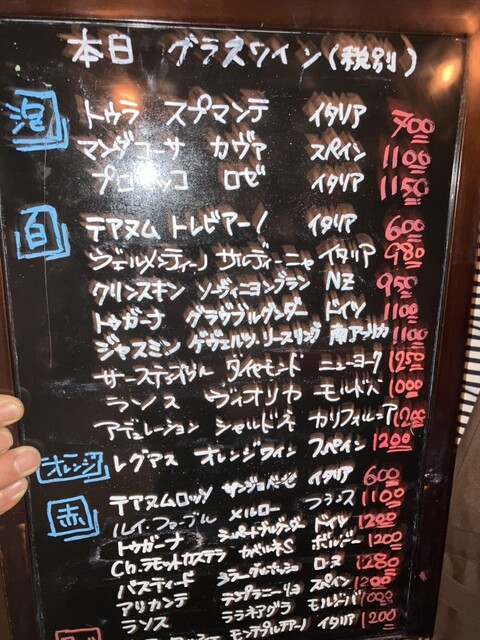 本日 グラスワイン(税別)
泡 トゥラ スプマンテ イタリア 700
マンダコーサ カヴァ スペイン 1100
プロセッコ ロゼ イタリア 1150
白 テアヌム トレビアーノ イタリア 600
ヴェルメンティーノ サルディーニャ イタリア 980
クリンスキン ソーヴィニヨンブラン NZ 950
トゥガーナ グラウブルグンダー ドイツ 1100
ジャスミン ゲヴェルツ.リースリング 南アフリカ 1100
ダイヤモンド ニューヨーク 1250
ラソス ヴィオリカ モルドバ 1000
アデュレーション シャルドネ カリフォルニア 1200
オレンジ レグアス オレンジワイン スペイン 1200
赤 テアヌムロッソ サンジョベーゼ イタリア 600
ルイ.ファーブル メルロー フランス 1100
トゥガーナ シュペートブルグンダー ドイツ 1200
Ch.ラモットカステラ カベルネS ボルドー 1200
バスティード シラーグルナッシュ ローヌ 1280
アリカンテ テンプラニーリョ スペイン 1200
ラソス ララネアグラ モルジーバ 1000
モンテプルチアーノ イタリア 1200